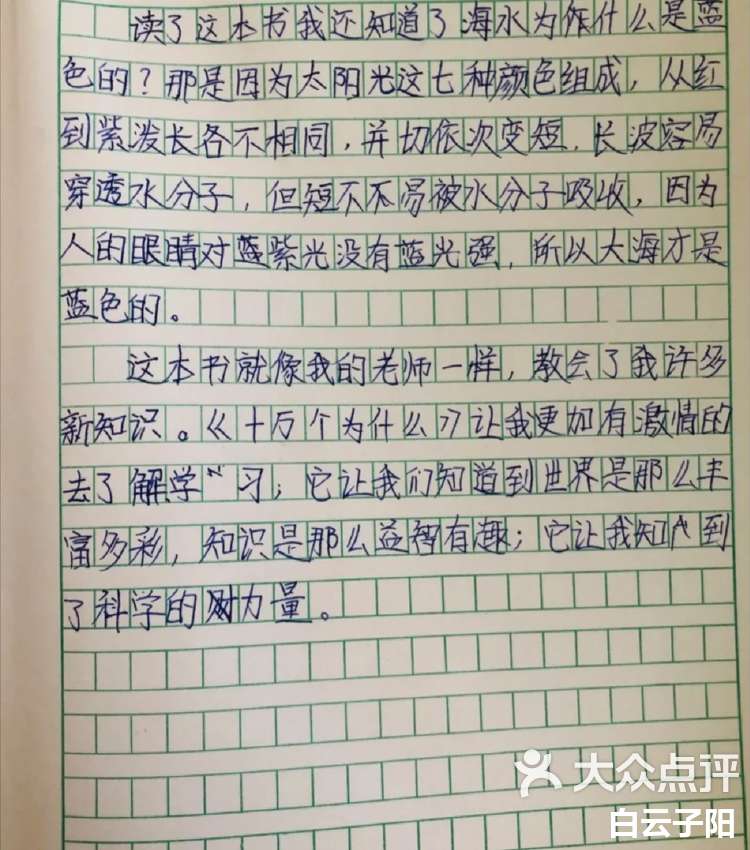 读了这本书我还知道了海水为作什么是蓝
色的？那是因为太阳光这七种颜色组成，从红
到紫泼长各不相同，并切依次变短，长波容易
穿透水分子，但短不不易被水分子吸收，因为
人的眼睛对蓝紫光没有蓝光强，所以大海才是
蓝色的。
这本书就像我的老师一样，教会了我许多
新知识。《十万个为什么》让我更加有激情的
去了解学习；它让我们知道到世界是那么丰
富多彩，知识是那么益智有趣；它让我知到
了科学的力量。
大众点评
白云子阳